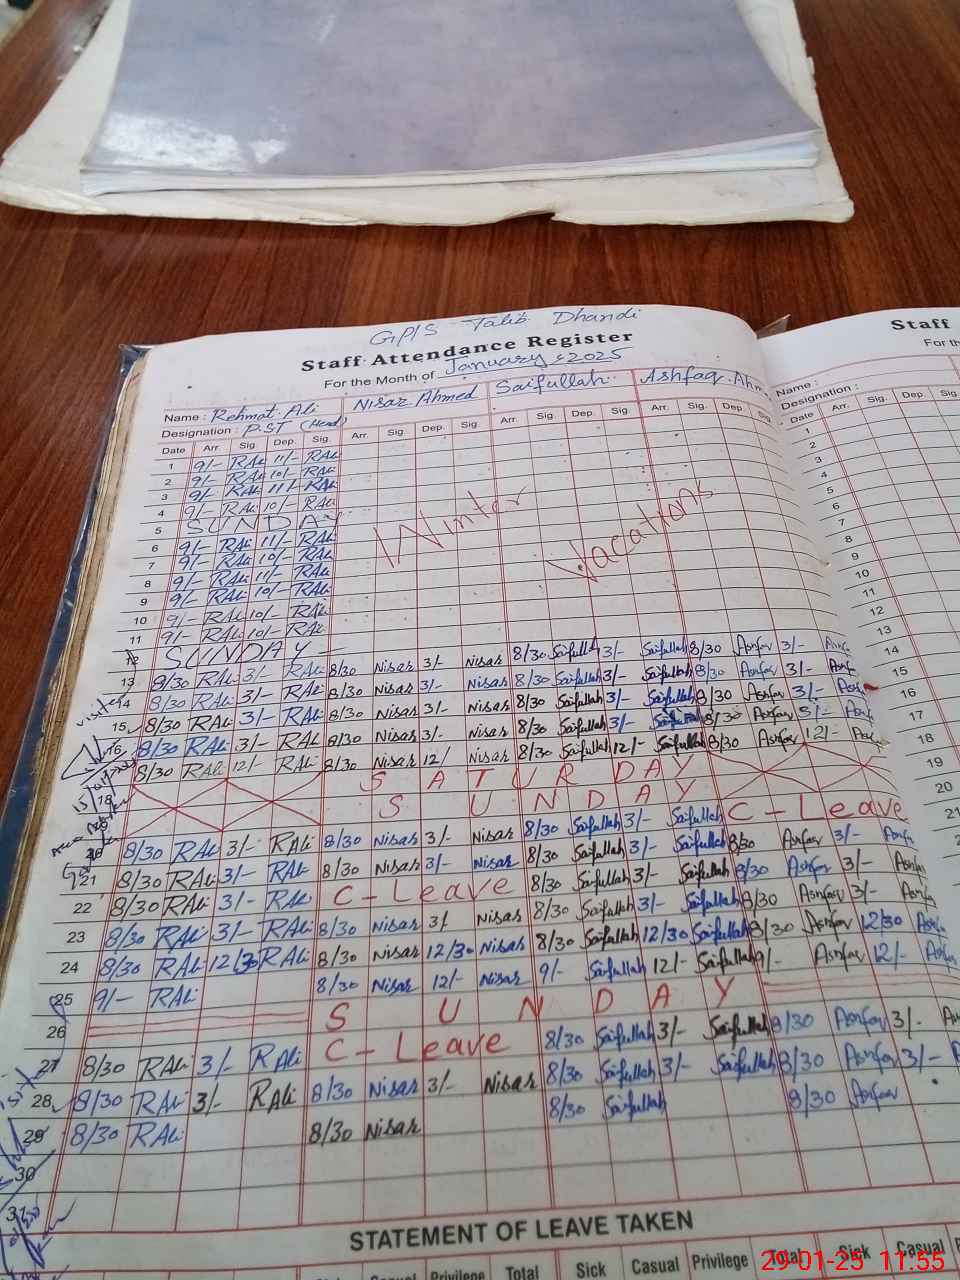 GP/S Talib Dhandi
Staff Attendance Register
For the Month of January 2025
Name : Rehmat Ali Nisar Ahmed Saifullah Ashfaq Ahm
Designation : P.S.T (Head)
Date Arr. Sig. Dep. Sig. Arr. Sig. Dep. Sig. Arr. Sig. Dep. Sig. Arr. Sig. Dep. Sig.
1 9/- RAli 11/- RAli
2 9/- RAli 10/- RAli
3 9/- RAli 11/- RAli
4 9/- RAli 10/- RAli
5 SUNDAY
6 9/- RAli 11/- RAli
7 9/- RAli 10/- RAli
8 9/- RAli 11/- RAli
9 9/- RAli 10/- RAli
10 9/- RAli 10/- RAli
11 9/- RAli 10/- RAli
Winter Vacations
12 SUNDAY
13 8/30 RAli 3/- RAli 8/30 Nisar 3/- Nisar 8/30 Saifullah 3/- Saifullah 8/30 Ashfaq 3/-
14 8/30 RAli 3/- RAli 8/30 Nisar 3/- Nisar 8/30 Saifullah 3/- Saifullah 8/30 Ashfaq 3/-
15 8/30 RAli 3/- RAli 8/30 Nisar 3/- Nisar 8/30 Saifullah 3/- Saifullah 8/30 Ashfaq 3/-
16 8/30 RAli 3/- RAli 8/30 Nisar 3/- Nisar 8/30 Saifullah 3/- Saifullah 8/30 Ashfaq 3/-
8/30 RAli 12/- RAli 8/30 Nisar 12/ Nisar 8/30 Saifullah 12/- Saifullah 8/30 Ashfaq 12/-
18 SATURDAY
SUNDAY
20 8/30 RAli 3/- RAli 8/30 Nisar 3/- Nisar 8/30 Saifullah 3/- Saifullah C-Leave
21 8/30 RAli 3/- RAli 8/30 Nisar 3/- Nisar 8/30 Saifullah 3/- Saifullah 8/30 Ashfaq 3/-
22 8/30 RAli 3/- RAli C-Leave 8/30 Saifullah 3/- Saifullah 8/30 Ashfaq 3/-
23 8/30 RAli 3/- RAli 8/30 Nisar 3/ Nisar 8/30 Saifullah 3/- Saifullah 8/30 Ashfaq 3/-
24 8/30 RAli 12/30 RAli 8/30 Nisar 12/30 Nisar 8/30 Saifullah 12/30 Saifullah 8/30 Ashfaq 12/30
25 9/- RAli 8/30 Nisar 12/- Nisar 9/- Saifullah 12/- Saifullah 9/- Ashfaq 12/-
26 SUNDAY
27 8/30 RAli 3/- RAli C-Leave 8/30 Saifullah 3/- Saifullah 8/30 Ashfaq 3/-
28 8/30 RAli 3/- RAli 8/30 Nisar 3/- Nisar 8/30 Saifullah 3/- Saifullah 8/30 Ashfaq 3/-
29 8/30 RAli 8/30 Nisar 8/30 Saifullah 8/30 Ashfaq
30
31
STATEMENT OF LEAVE TAKEN
Sick Casual Privilege Total Sick Casual Privilege Total Sick Casual
Staff
For th
Name :
Designation :
Date Arr. Sig. Dep. Sig.
1
2
3
4
5
6
7
8
9
10
11
12
13
14
15
16
17
18
19
20
21
29-01-25 11:55